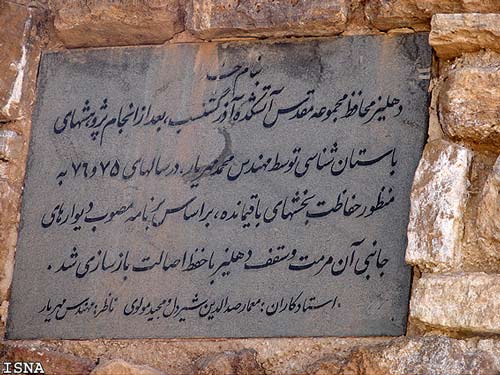 بنام خدا
دهلیز محافظ مجموعه مقدس آتشکده آذرگشسب، بعد از انجام پژوهشهای
باستان شناسی توسط مهندس محمد مهریار، در سالهای ۷۵ و ۷۶ به
منظور حفاظت بخشهای باقیمانده، براساس برنامه مصوب دیوارهای
جانبی آن مرمت و سقف دهلیز با حفظ اصالت بازسازی شد.
استادکاران: معمار صدالدین شیردل و مجید مولوی ناظر: مهندس مهریار
ISNA
ISNA